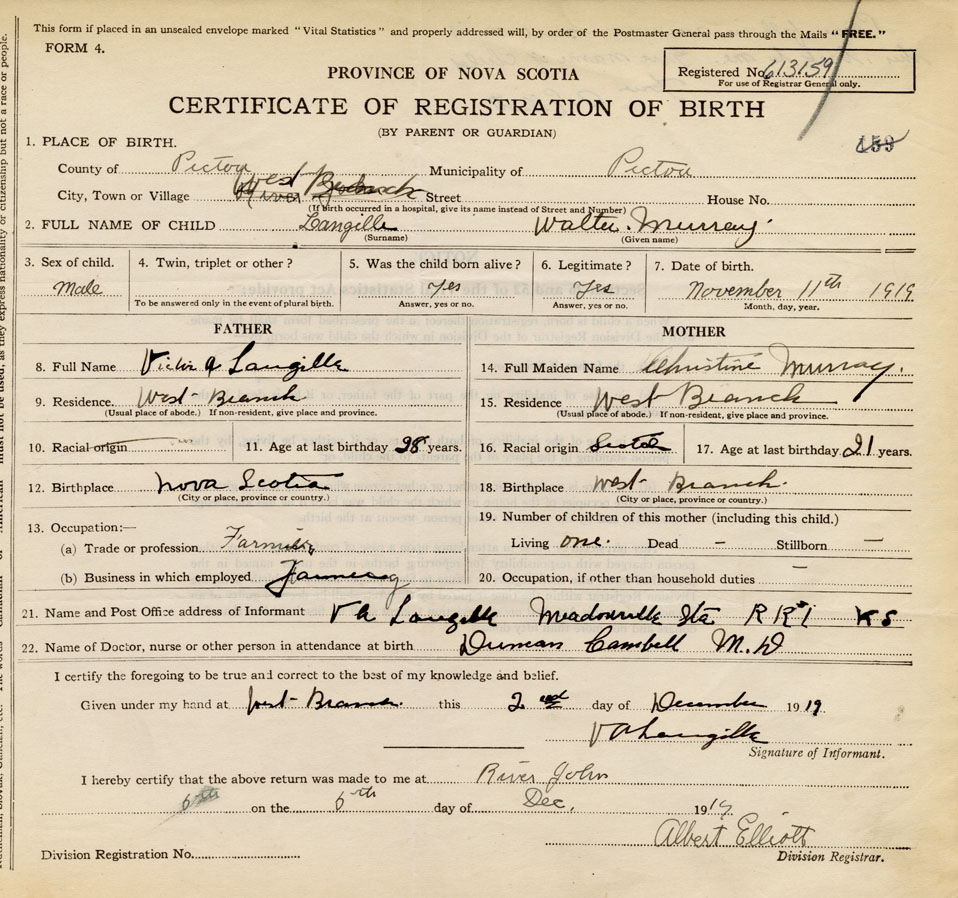 This form if placed in an unsealed envelope marked "Vital Statistics" and properly addressed will, by order of the Postmaster General pass through the Mails "FREE."
FORM 4.
Registered No. 613159
For use of Registrar General only.
PROVINCE OF NOVA SCOTIA
CERTIFICATE OF REGISTRATION OF BIRTH
(BY PARENT OR GUARDIAN)
159
1. PLACE OF BIRTH.
County of Pictou Municipality of Pictou
City, Town or Village West Branch Street House No.
(If birth occurred in a hospital, give its name instead of Street and Number)
2. FULL NAME OF CHILD Langille Walter Murray
(Surname) (Given name)
3. Sex of child. 4. Twin, triplet or other? 5. Was the child born alive? 6. Legitimate? 7. Date of birth.
Male Yes Yes November 11th 1919
To be answered only in the event of plural birth. Answer, yes or no. Answer, yes or no. Month, day, year.
FATHER MOTHER
8. Full Name Victor A Langille 14. Full Maiden Name Christine Murray.
9. Residence. West Branch 15. Residence West Branch
(Usual place of abode.) If non-resident, give place and province. (Usual place of abode.) If non-resident, give place and province.
10. Racial origin 11. Age at last birthday 28 years. 16. Racial origin Scotch 17. Age at last birthday 21 years.
12. Birthplace Nova Scotia 18. Birthplace West Branch
(City or place, province or country.) (City or place, province or country.)
13. Occupation:— 19. Number of children of this mother (including this child.)
(a) Trade or profession Farmer Living one. Dead — Stillborn —
(b) Business in which employed Farming 20. Occupation, if other than household duties —
21. Name and Post Office address of Informant V A Langille Meadowville Sta R R #1
22. Name of Doctor, nurse or other person in attendance at birth Duncan Campbell M.D
I certify the foregoing to be true and correct to the best of my knowledge and belief.
Given under my hand at West Branch this 2nd day of December 1919
V A Langille
Signature of Informant.
I hereby certify that the above return was made to me at River John
6th on the 6th day of Dec. 1919
Albert Elliott
Division Registration No. Division Registrar.